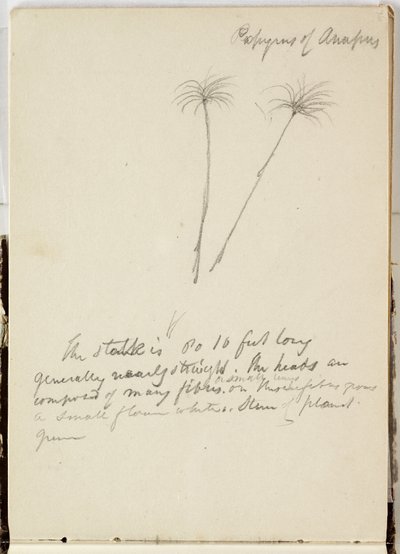 Papyrus of Anapus
The stalk is 8 to 10 feet long
generally nearly straight. The heads are
composed of many fibres or small leaves on these fibres grows
a small flower white. Stem of plant
green